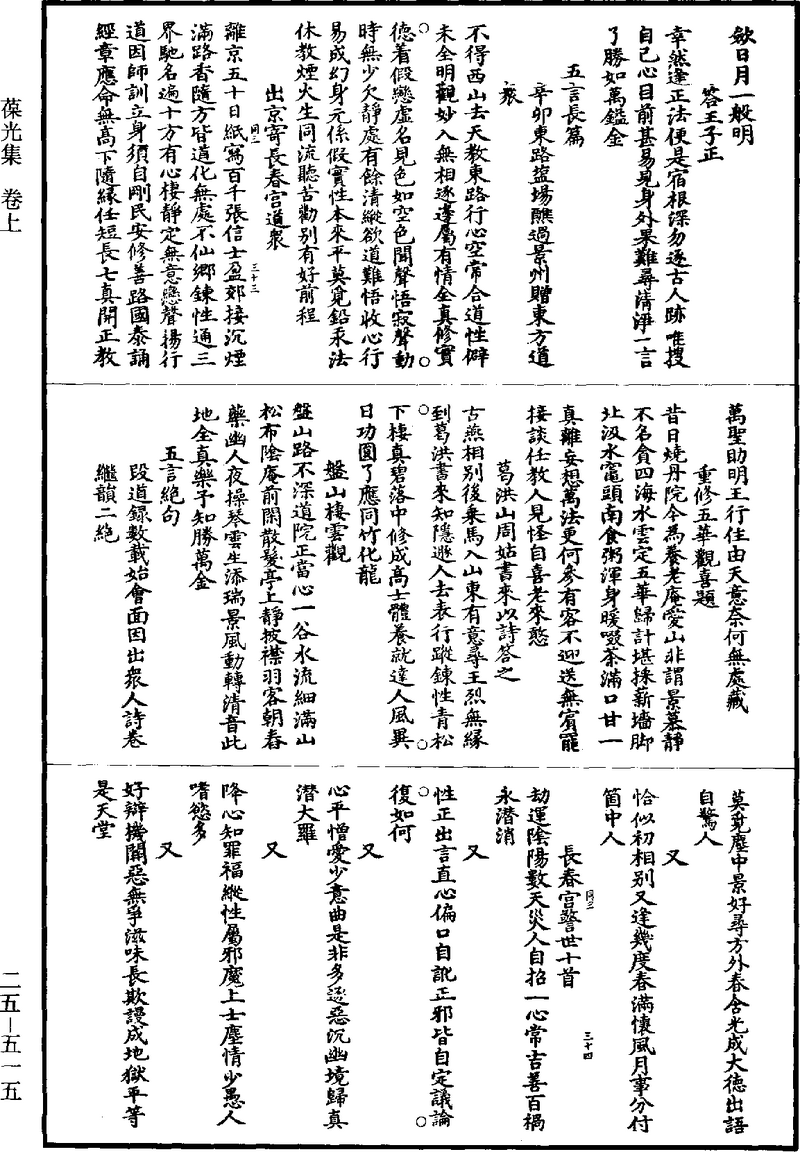 葆光集　卷上
斂日月一般明
答王子正
幸然逢正法便是宿根深勿逐古人跡唯搜
自己心目前甚易見身外果難尋清淨一言
了勝如萬鎰金
五言長篇
辛卯東路塩場醮過景州贈東方道
衆
不得西山去天教東路行心空常合道性僻
未全明觀妙入無相逐邊屬有情全真修實
德着假戀虛名見色如空色聞聲悟寂聲動
時無少欠靜處有餘清縱欲道難悟收心行
易成幻身元係假實性本來平莫覓鉛汞法
休教煙火生同流聽苦勸别有好前程
出京寄長春宮道衆
離京五十日紙寫百千張信士盈郊接沉煙
滿路香隨方皆道化無處不仙鄉鍊性通三
界馳名遍十方有心棲靜定無意戀聲揚行
道因師訓立身須自剛民安修善路國泰誦
經章應命無高下隨緣任短長七真開正教
同三
三十三
萬聖助明王行住由天意奈何無處藏
重修五華觀喜題
昔日燒丹院今為養老庵愛山非謂景慕靜
不名貪四海水雲定五華歸計堪採薪墻脚
北汲水竈頭南食粥渾身暖啜茶滿口甘一
真離妄想萬法更何參有客不迎送無賓罷
接談任教人見怪自喜老來憨
葛洪山周姑書來以詩答之
古燕相别後乘馬入山東有意尋王烈無緣
到葛洪書來知隱遯人去表行蹤鍊性青松
下棲真碧落中修成高士體養就達人風異
日功圓了應同竹化龍
盤山棲雲觀
盤山路不深道院正當心一谷水流細滿山
松布陰庵前閑散髮亭上靜披襟羽客朝舂
藥幽人夜操琴雲生添瑞景風動轉清音此
地全真樂予知勝萬金
五言絶句
段道録數載始會面因出衆人詩卷
繼韻二絶
莫覓塵中景好尋方外春含光成大德出語
自驚人
又
恰似初相别又逢幾度春滿懷風月事分付
箇中人
長春宮警世十首
劫運陰陽數天災人自招一心常吉善百禍
永潜消
又
性正出言直心偏口自訛正邪皆自定議論
復如何
又
心平憎愛少意曲是非多逐惡沉幽境歸真
潜大羅
又
降心知罪福縱性屬邪魔上士塵情少愚人
嗜慾多
又
好辯機闗惡無爭滋味長欺謾成地獄平等
是天堂
同三
三十四
二五—五一五